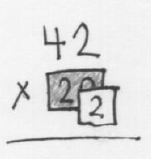 42
× 2
2